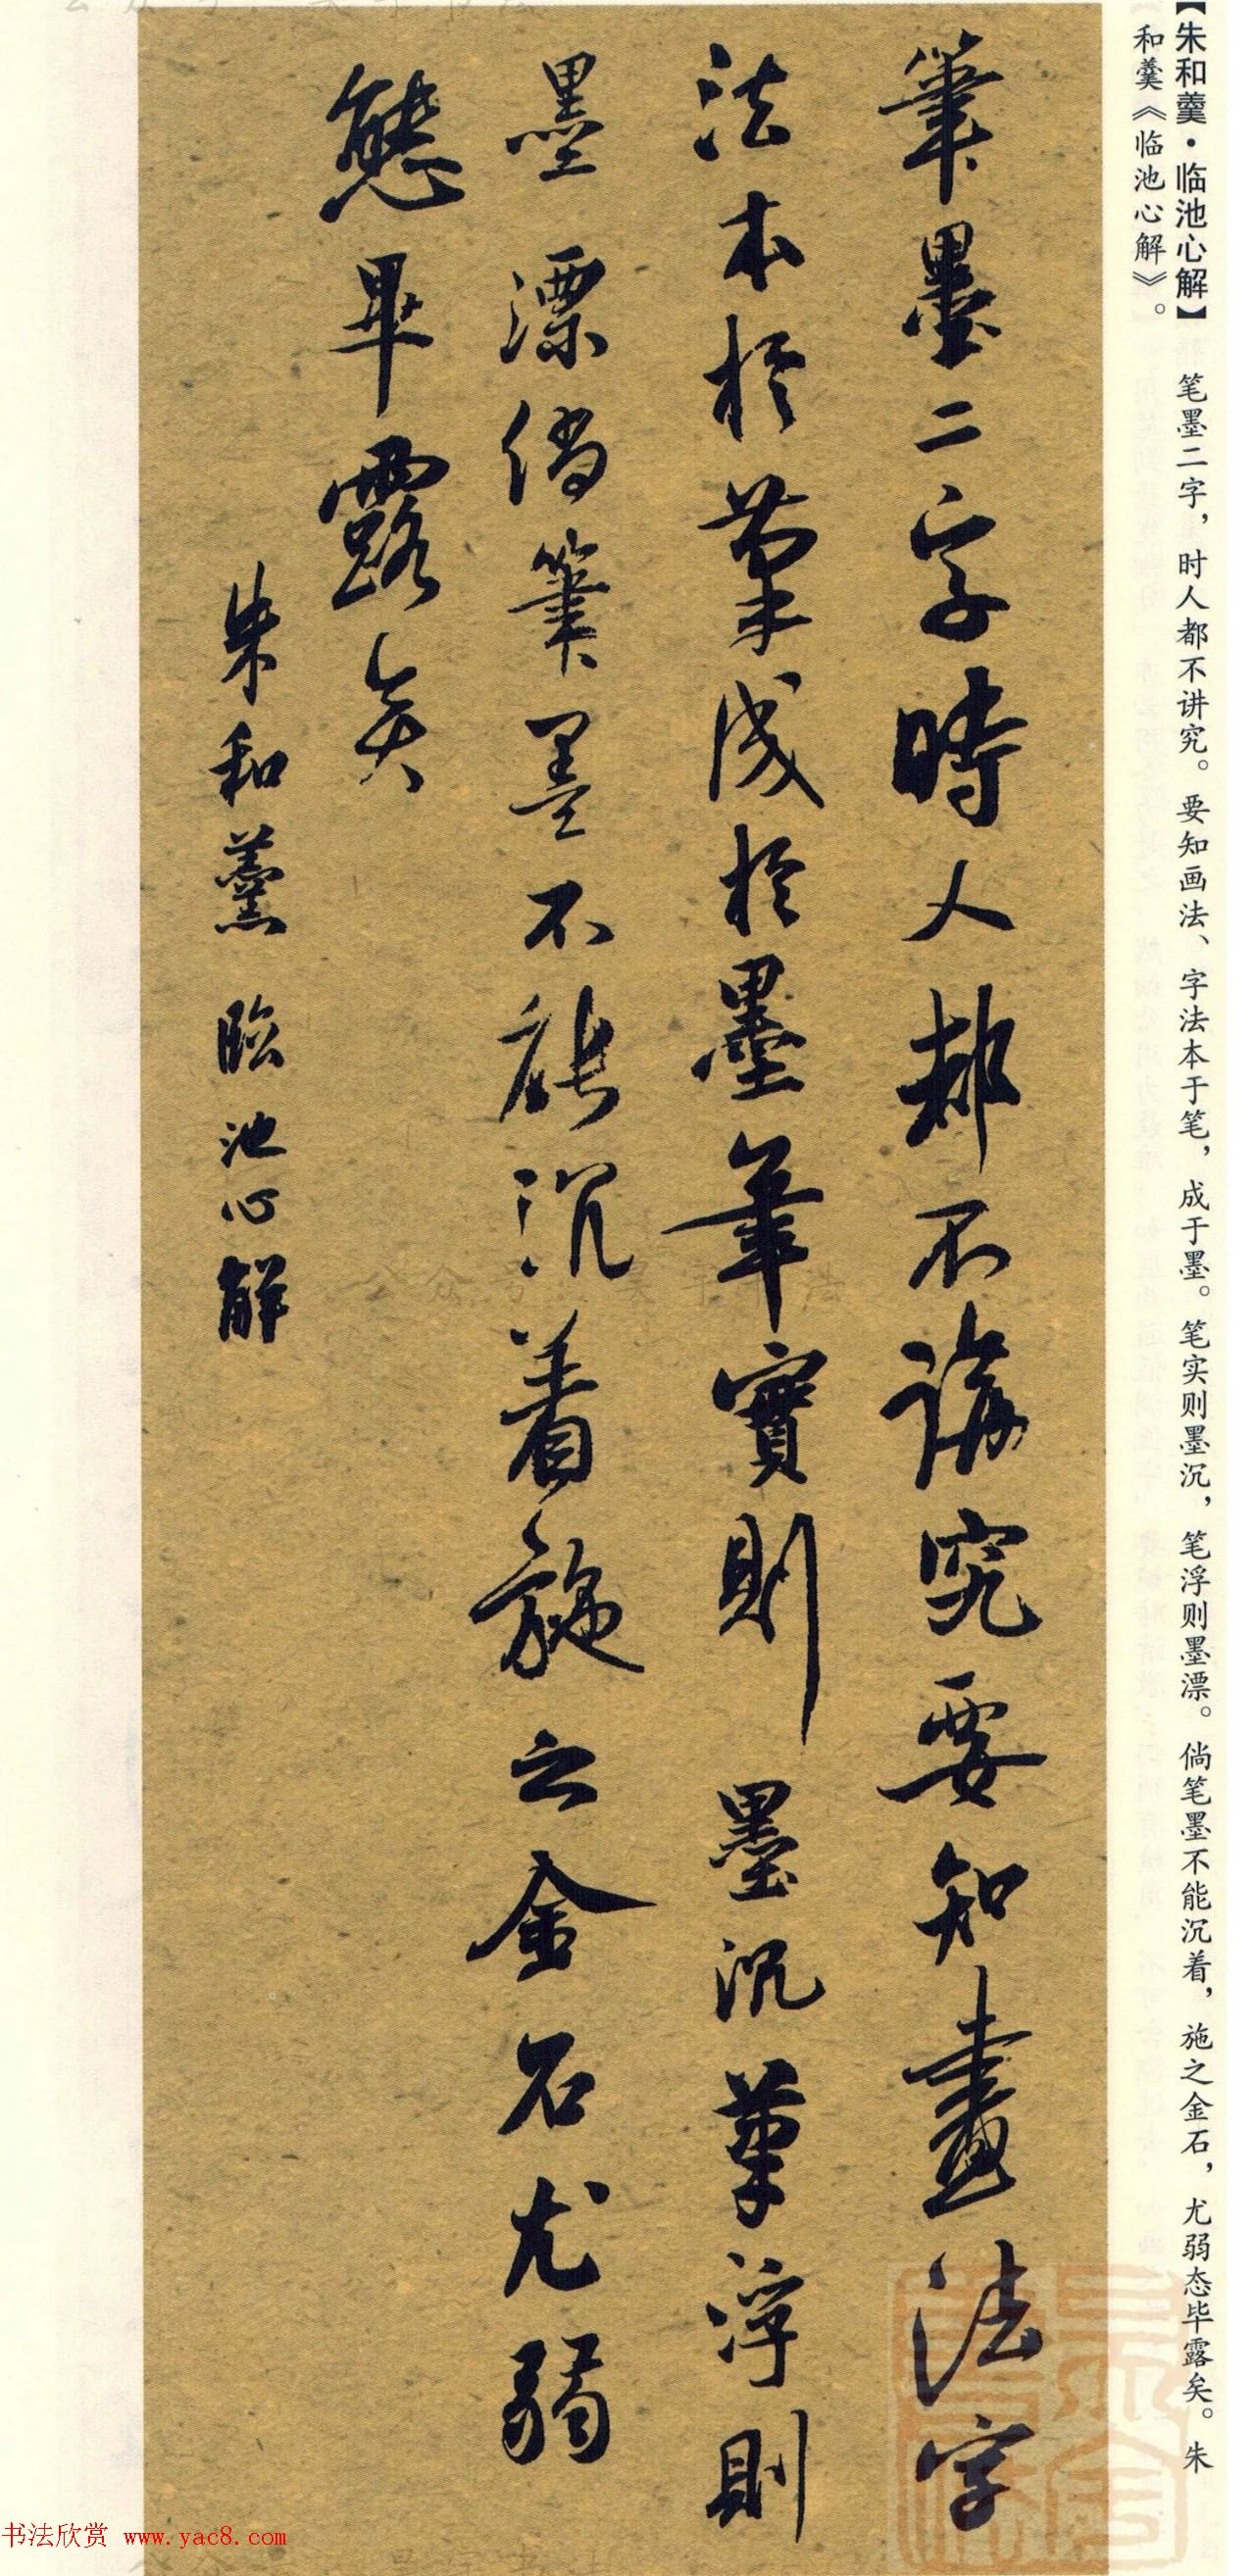 【朱和羹·临池心解】 笔墨二字，时人都不讲究。要知画法、字法本于笔，成于墨。笔实则墨沉，笔浮则墨漂。倘笔墨不能沉着，施之金石，尤弱态毕露矣。朱
和羹《临池心解》。
筆墨二字時人都不講究要知畫法字
法本於筆成於墨筆實則墨沉筆浮則
墨漂倘筆墨不能沉着施之金石尤弱
態畢露矣
朱和羹臨池心解
书法欣赏 www.yac8.com